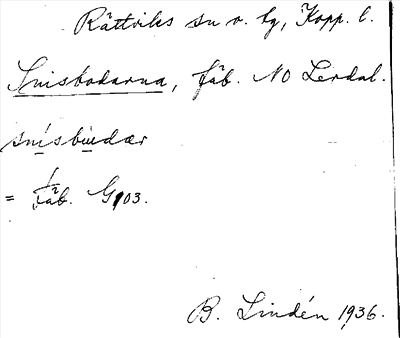 Rättviks sn o. tg, Kopp. l.
Snisbodarna, fäb. NO Lerdal.
snisbudær
= Fäb. G103.
B. Lindén 1936.